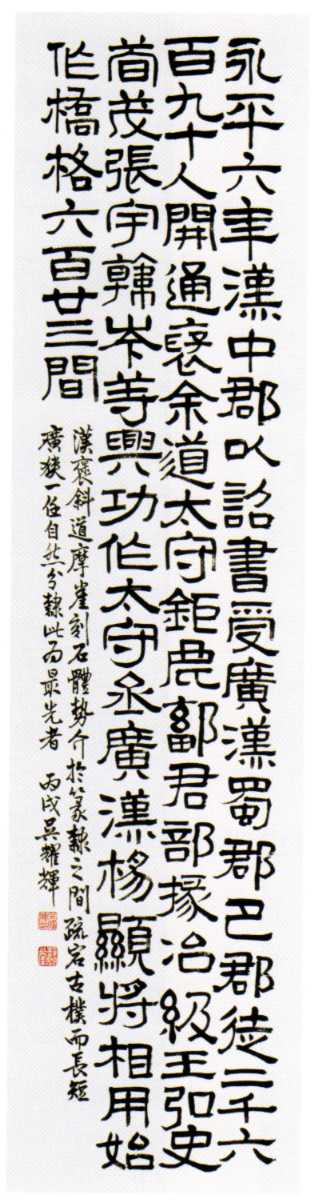 永平六年漢中郡以詔書受廣漢蜀郡巴郡徒二千六
百九十人開通褒余道太守鉅鹿鄐君部掾冶級王弘史
荀茂張宇韓岑等興功作太守丞廣漢楊顯將相用始
作橋格六百廿三間
漢褒斜道摩崖刻石體勢介於篆隸之間疏宕古樸而長短
廣狹一任自然分隸此為最先者 丙戌吳耀輝